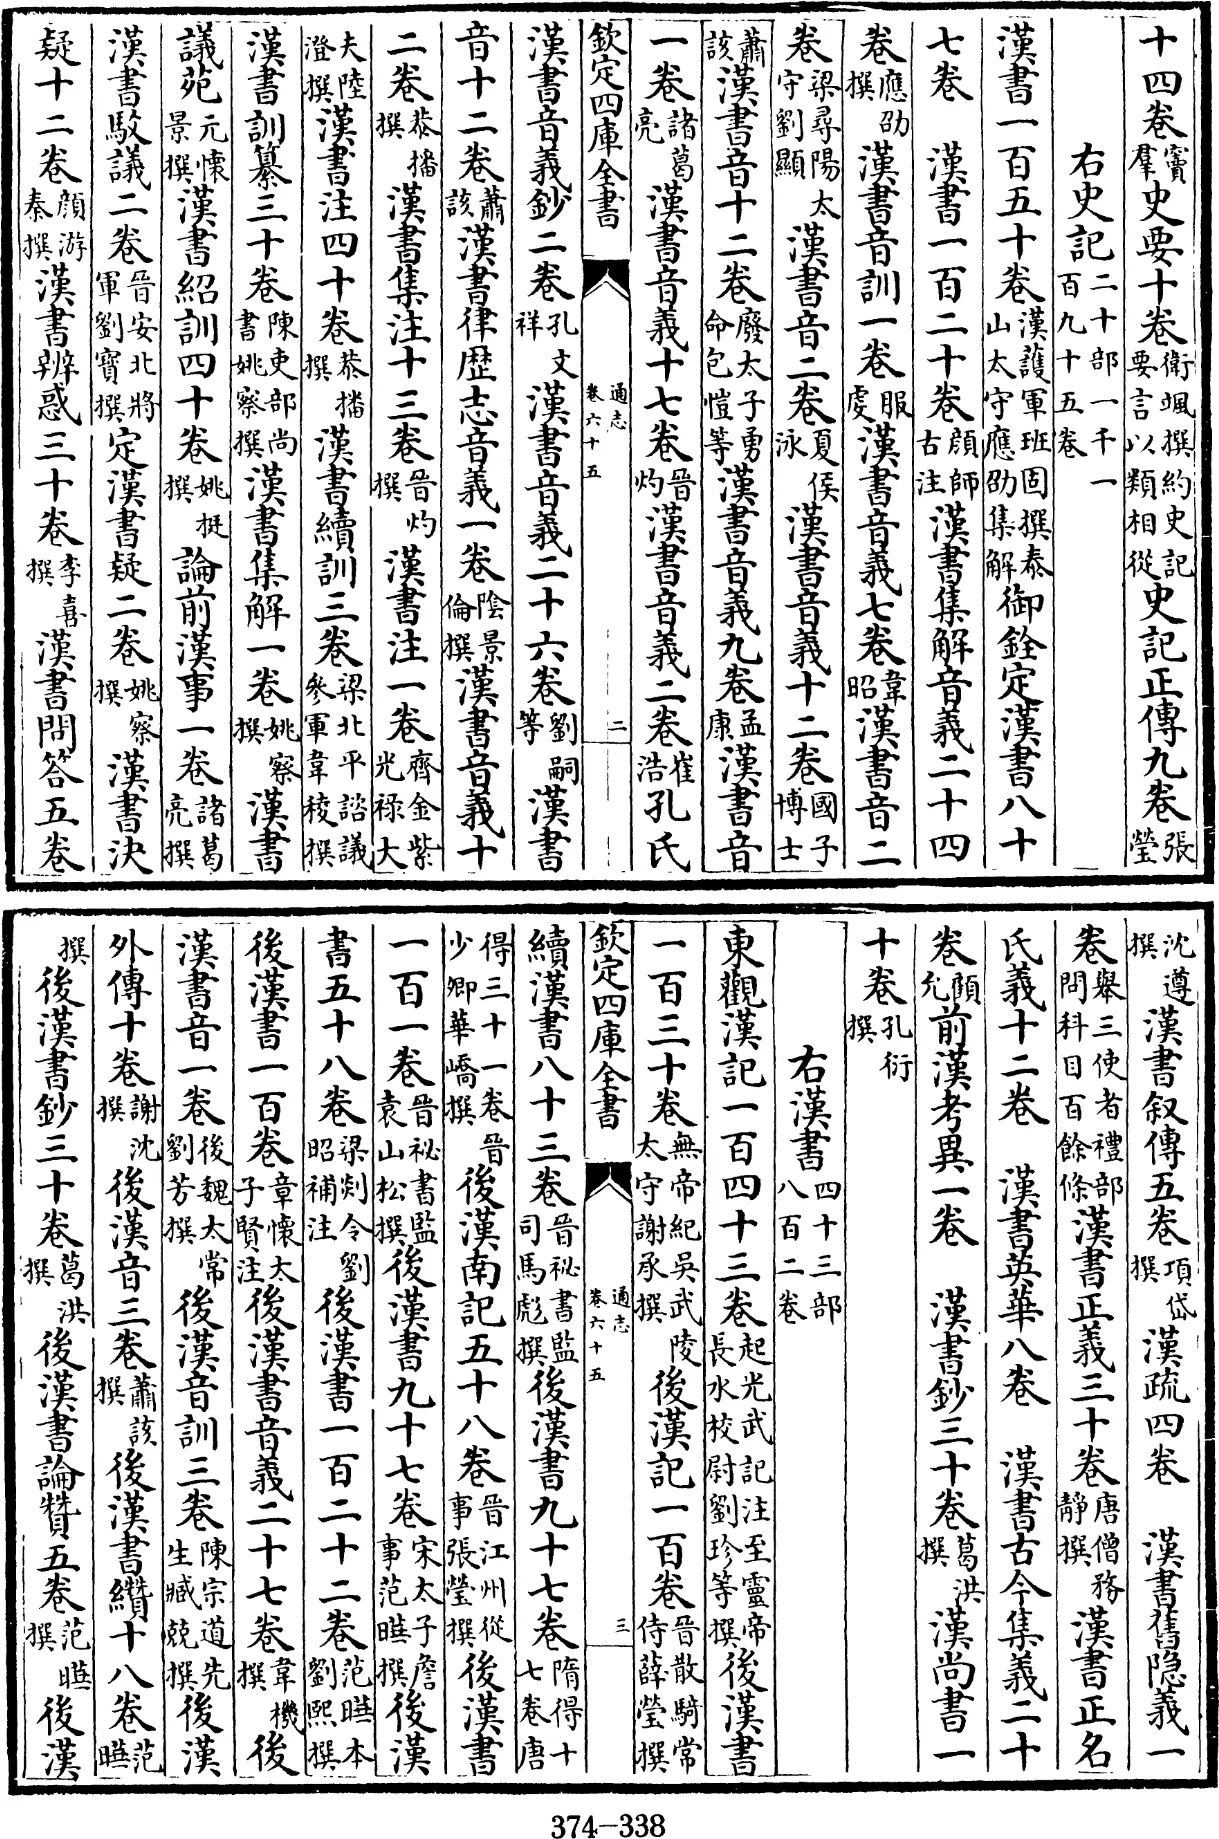 十四卷竇羣史要十卷衛颯撰約史記要言以類相從史記正傳九卷張瑩
右史記二十部一千一百九十五卷
漢書一百五十卷漢護軍班固撰泰山太守應劭集解御銓定漢書八十
七卷　漢書一百二十卷顔師古注漢書集解音義二十四
卷應劭撰漢書音訓一卷服虔漢書音義七卷韋昭漢書音二
卷梁尋陽太守劉顯漢書音二卷夏侯泳漢書音義十二卷國子博士
蕭該漢書音十二卷廢太子勇命包愷等漢書音義九卷孟康漢書音
一卷諸葛亮漢書音義十七卷晉灼漢書音義二卷崔浩孔氏
欽定四庫全書　通志卷六十五　二
漢書音義鈔二卷孔文祥漢書音義二十六卷劉嗣等漢書
音十二卷蕭該漢書律歴志音義一卷陰景倫撰漢書音義十
二卷㳟播撰漢書集注十三卷晉灼撰漢書注一卷齊金紫光禄大
夫陸澄撰漢書注四十卷㳟播撰漢書續訓三卷梁北平諮議參軍韋稜撰
漢書訓纂三十卷陳吏部尚書姚察撰漢書集解一卷姚察撰漢書
議苑元懷景撰漢書紹訓四十卷姚挺撰論前漢事一卷諸葛亮撰
漢書駮議二卷晉安北將軍劉寳撰定漢書疑二卷姚察撰漢書決
疑十二卷顔游秦撰漢書辨惑三十卷李喜撰漢書問答五卷
沈遵撰漢書叙傳五卷項岱撰漢疏四卷　漢書舊隱義一
卷舉三使者禮部問科目百餘條漢書正義三十卷唐僧務靜撰漢書正名
氏義十二卷　漢書英華八卷　漢書古今集義二十
卷顧允前漢考異一卷　漢書鈔三十卷葛洪撰漢尚書一
十卷孔衍撰
右漢書四十三部八百二卷
東觀漢記一百四十三卷起光武記注至靈帝長水校尉劉珍等撰後漢書
一百三十卷無帝紀吳武陵太守謝承撰後漢記一百卷晉散騎常侍薛瑩撰
欽定四庫全書　通志卷六十五　三
續漢書八十三卷晉祕書監司馬彪撰後漢書九十七卷隋得十七卷唐
得三十一卷晉少卿華嶠撰後漢南記五十八卷晉江州從事張瑩撰後漢書
一百一卷晉祕書監袁山松撰後漢書九十七卷宋太子詹事范曄撰後漢
書五十八卷梁剡令劉昭補注後漢書一百二十二卷范曄本劉熙撰
後漢書一百卷章懷太子賢注後漢書音義二十七卷韋機撰後
漢書音一卷後魏太常劉芳撰後漢音訓三卷陳宗道先生臧兢撰後漢
外傳十卷謝沈撰後漢音三卷蕭該撰後漢書纘十八卷范曄
撰後漢書鈔三十卷葛洪撰後漢書論贊五卷范曄撰後漢
374-338